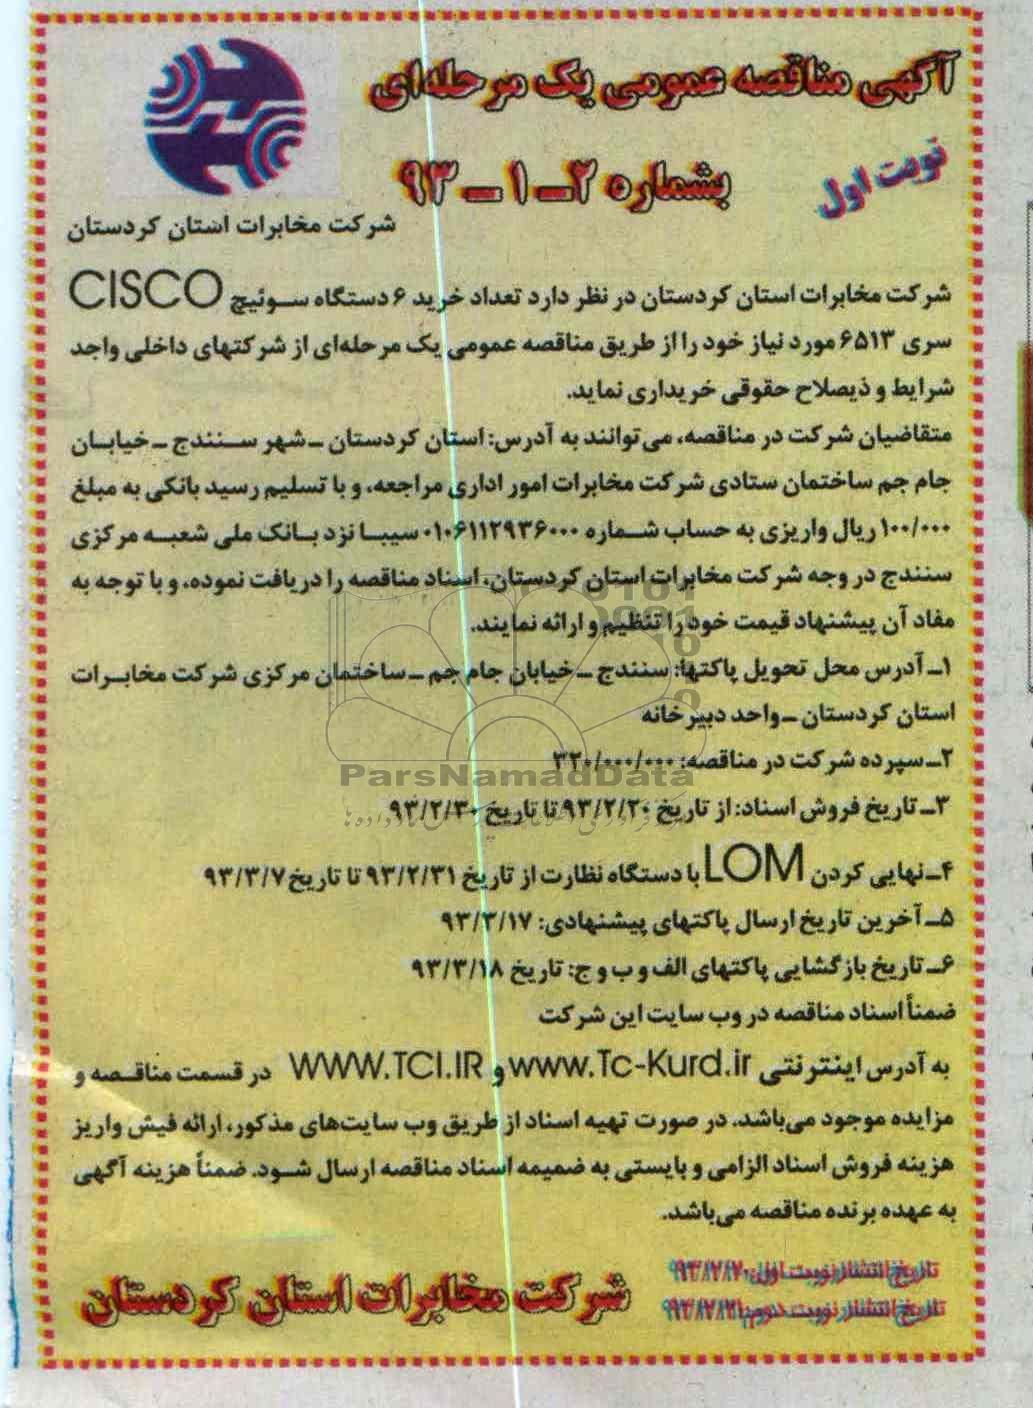 آگهی مناقصه عمومی یک مرحله‌ای
نوبت اول
بشماره ۲ــ۱ــ۹۳
شرکت مخابرات استان کردستان
شرکت مخابرات استان کردستان در نظر دارد تعداد خرید ۶ دستگاه سـوئیچ CISCO
سری ۶۵۱۳ مورد نیاز خود را از طریق مناقصه عمومی یک مرحله‌ای از شرکتهای داخلی واجد
شرایط و ذیصلاح حقوقی خریداری نماید.
متقاضیان شرکت در مناقصه، می‌توانند به آدرس: استان کردستان ــ شهر سـنندج ــ خیابـان
جام جم ساختمان ستادی شرکت مخابرات امور اداری مراجعه، و با تسلیم رسید بانکی به مبلغ
۱۰۰/۰۰۰ ریال واریزی به حساب شـماره ۰۱۰۶۱۱۲۹۳۶۰۰۰ سیبـا نزد بـانک ملی شعبـه مرکزی
سنندج در وجه شرکت مخابرات استان کردستان، اسناد مناقصه را دریافت نموده، و با توجه به
مفاد آن پیشنهاد قیمت خود را تنظیم و ارائه نمایند.
۱ــ آدرس محل تحویل پاکتها: سنندج ــ خیابان جام جم ــ ساختمان مرکزی شرکت مخابـرات
استان کردستان ــ واحد دبیرخانه
۲ــ سپرده شرکت در مناقصه: ۳۲۰/۰۰۰/۰۰۰
ParsNamadData
۳ــ تاریخ فروش اسناد: از تاریخ ۹۳/۲/۲۰ تا تاریخ ۹۳/۲/۳۰
۴ــ نهایی کردن LOM با دستگاه نظارت از تاریخ ۹۳/۲/۳۱ تا تاریخ ۹۳/۳/۷
۵ــ آخرین تاریخ ارسال پاکتهای پیشنهادی: ۹۳/۳/۱۷
۶ــ تاریخ بازگشایی پاکتهای الف و ب و ج: تاریخ ۹۳/۳/۱۸
ضمناً اسناد مناقصه در وب سایت این شرکت
به آدرس اینترنتی www.Tc-Kurd.ir و WWW.TCI.IR در قسمت مناقـصه و
مزایده موجود می‌باشد. در صورت تهیه اسناد از طریق وب سایت‌های مذکور، ارائه فیش واریز
هزینه فروش اسناد الزامی و بایستی به ضمیمه اسناد مناقصه ارسال شـود. ضمناً هزینه آگهی
به عهده برنده مناقصه می‌باشد.
تاریخ انتشار نوبت اول: ۹۳/۲/۲۰
تاریخ انتشار نوبت دوم: ۹۳/۲/۲۱
شرکت مخابرات استان کردستان